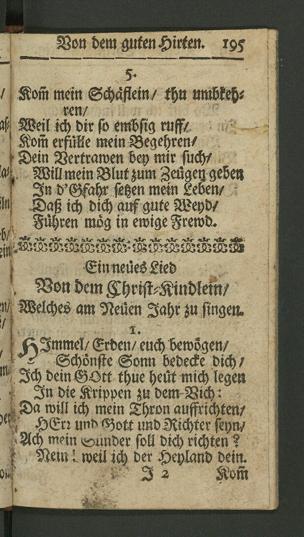 Von dem guten Hirten. 195
5.
Kom̃ mein Schäflein/ thu umbkeh-
ren/
Weil ich dir so embsig ruff/
Kom̃ erfülle mein Begehren/
Dein Vertrawen bey mir such/
Will mein Blut zum Zeügen geben
In d'Gfahr setzen mein Leben/
Daß ich dich auf gute Weyd/
Führen mög in ewige Frewd.
Ein neües Lied
Von dem Christ-Kindlein/
Welches am Neüen Jahr zu singen.
1.
HImmel/ Erden/ euch bewögen/
Schönste Sonn bedecke dich/
Ich dein GOtt thue heüt mich legen
In die Krippen zu dem Vich:
Da will ich mein Thron auffrichten/
HErꝛ und Gott und Richter seyn/
Ach mein Sünder soll dich richten?
Nein! weil ich der Heyland dein.
J 2 Kom̃